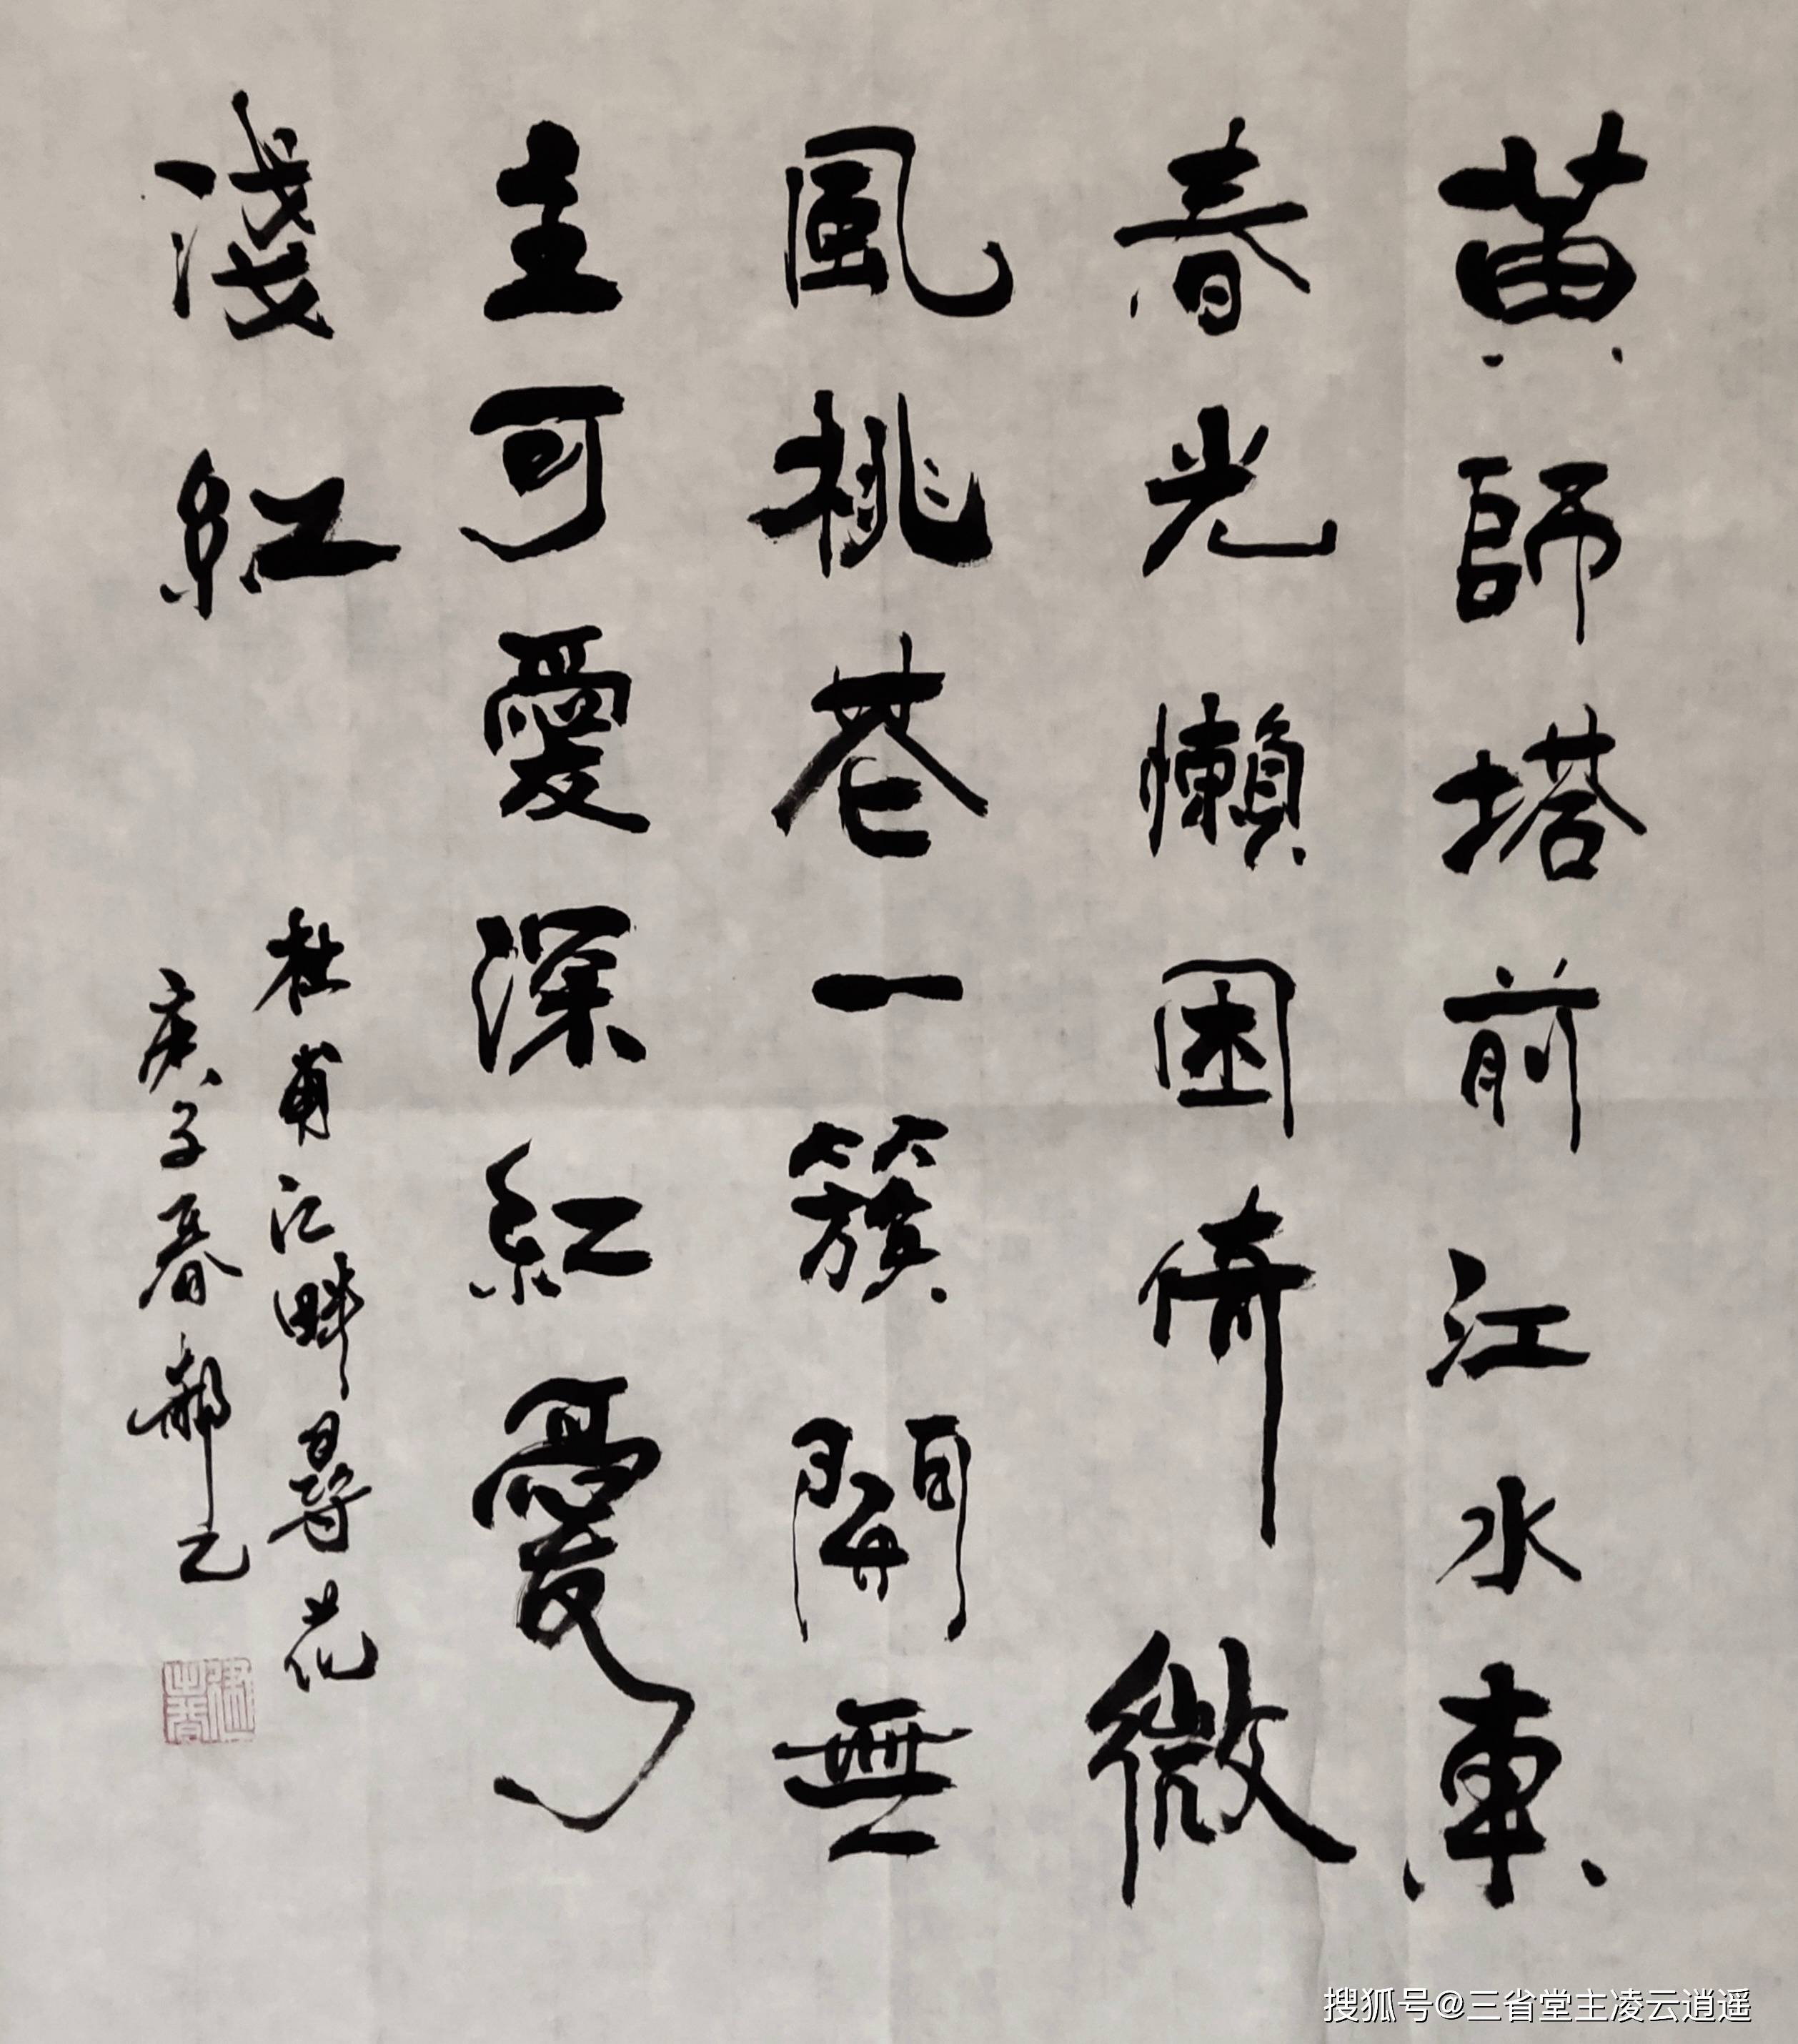 黄師塔前江水東
春光懶困倚微
風桃巷一簇開無
主可愛深紅愛
淺紅
杜甫江畔尋花
庚子春郝之
搜狐号@三省堂主凌云逍遥